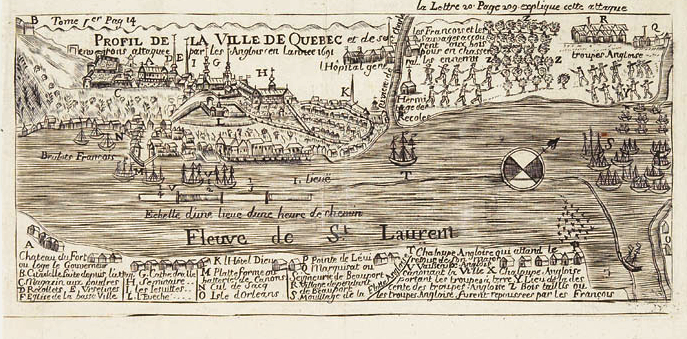 la Lettre 20 Page 209 explique cette attaque
B Tome 1er Pag 14
PROFIL DE LA VILLE DE QUEBEC et de ses
environs attaquee par les Anglois en l'annee 1691
les Francois et les
Sauvages
aux bois
pour en chasser
les ennemis
l'Hopital general
Hermitage des
Recolets
troupes Angloises
Z
R
Q
D E I G
H
K
C
L
N
M
V
S
T
Brulots Francois
1 Lieuë
Echelle d'une lieue d'une heure de chemin
Fleuve de St. Laurent
A
Chateau du Fort
ou loge le Gouverneur
B Citadelle faite depuis
C Magazin aux poudres
D Recolets E Urselines
F Eglise de la basse Ville
G Cathedralle
H Seminaire
I les Jesuites
L l'Eveché
K l'Hôtel Dieu
M Platte forme ou
batterie de Canons
N Cul de Sacq
O Isle d'Orleans
P Pointe de Levi
Q ou
Seigneurie de Beauport
R Village dependant
de Beauport
S Mouillage de la
Flotte Angloise
T Chaloupe Angloise qui attend le
V Vaisseaux Anglois
la Ville X Chaloupe Angloise
portent les troupes à terre Y Lieu de la des
cente des troupes Angloise Z Bois taillis ou
les troupes Angloise furent repoussees par les Francois